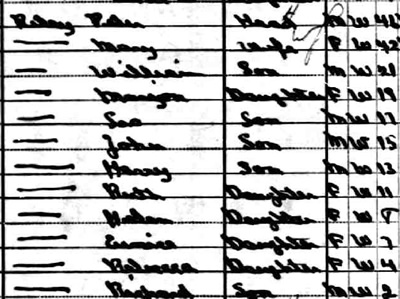 Peter Head M W
Mary Wife F W 42
William Son M W 21
Daughter F W 19
Son M W 17
John Son M W 15
Harvey Son M W 13
Ruth Daughter F W 11
Helen Daughter F W 8
Eunice Daughter F W 7
Rebecca Daughter F W 4
Richard Son M W 2